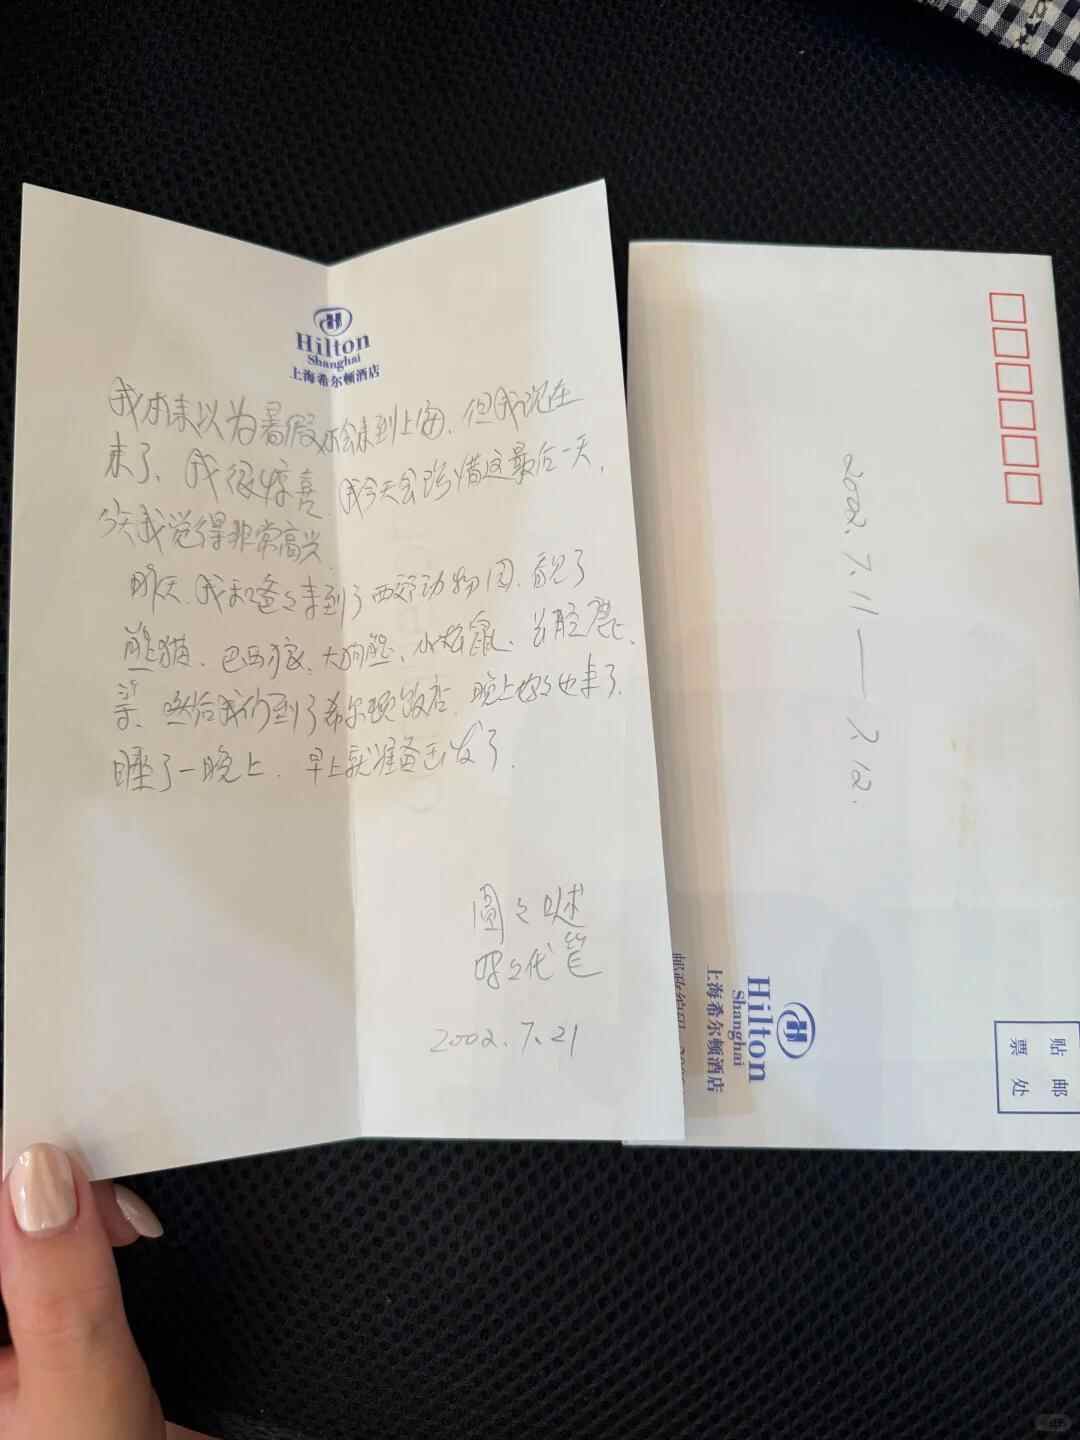 Hilton
Shanghai
上海希尔顿酒店
我本来以为暑假不会来到上海、但我现在
来了、我很惊喜、我今天会珍惜这最后一天、
今天我觉得非常高兴、
昨天、我和爸々来到了西郊动物园、看见了
熊猫、巴西狼、大狗熊、小松鼠、长颈鹿、
等、然后我们到了希尔顿饭店、晚上妈々也来了、
睡了一晚上、早上就准备出发了、
圆々
妈々代笔
2002.7.21
2002.7.11——7.12.
Hilton
Shanghai
上海希尔顿酒店
邮政编码
贴邮
票处